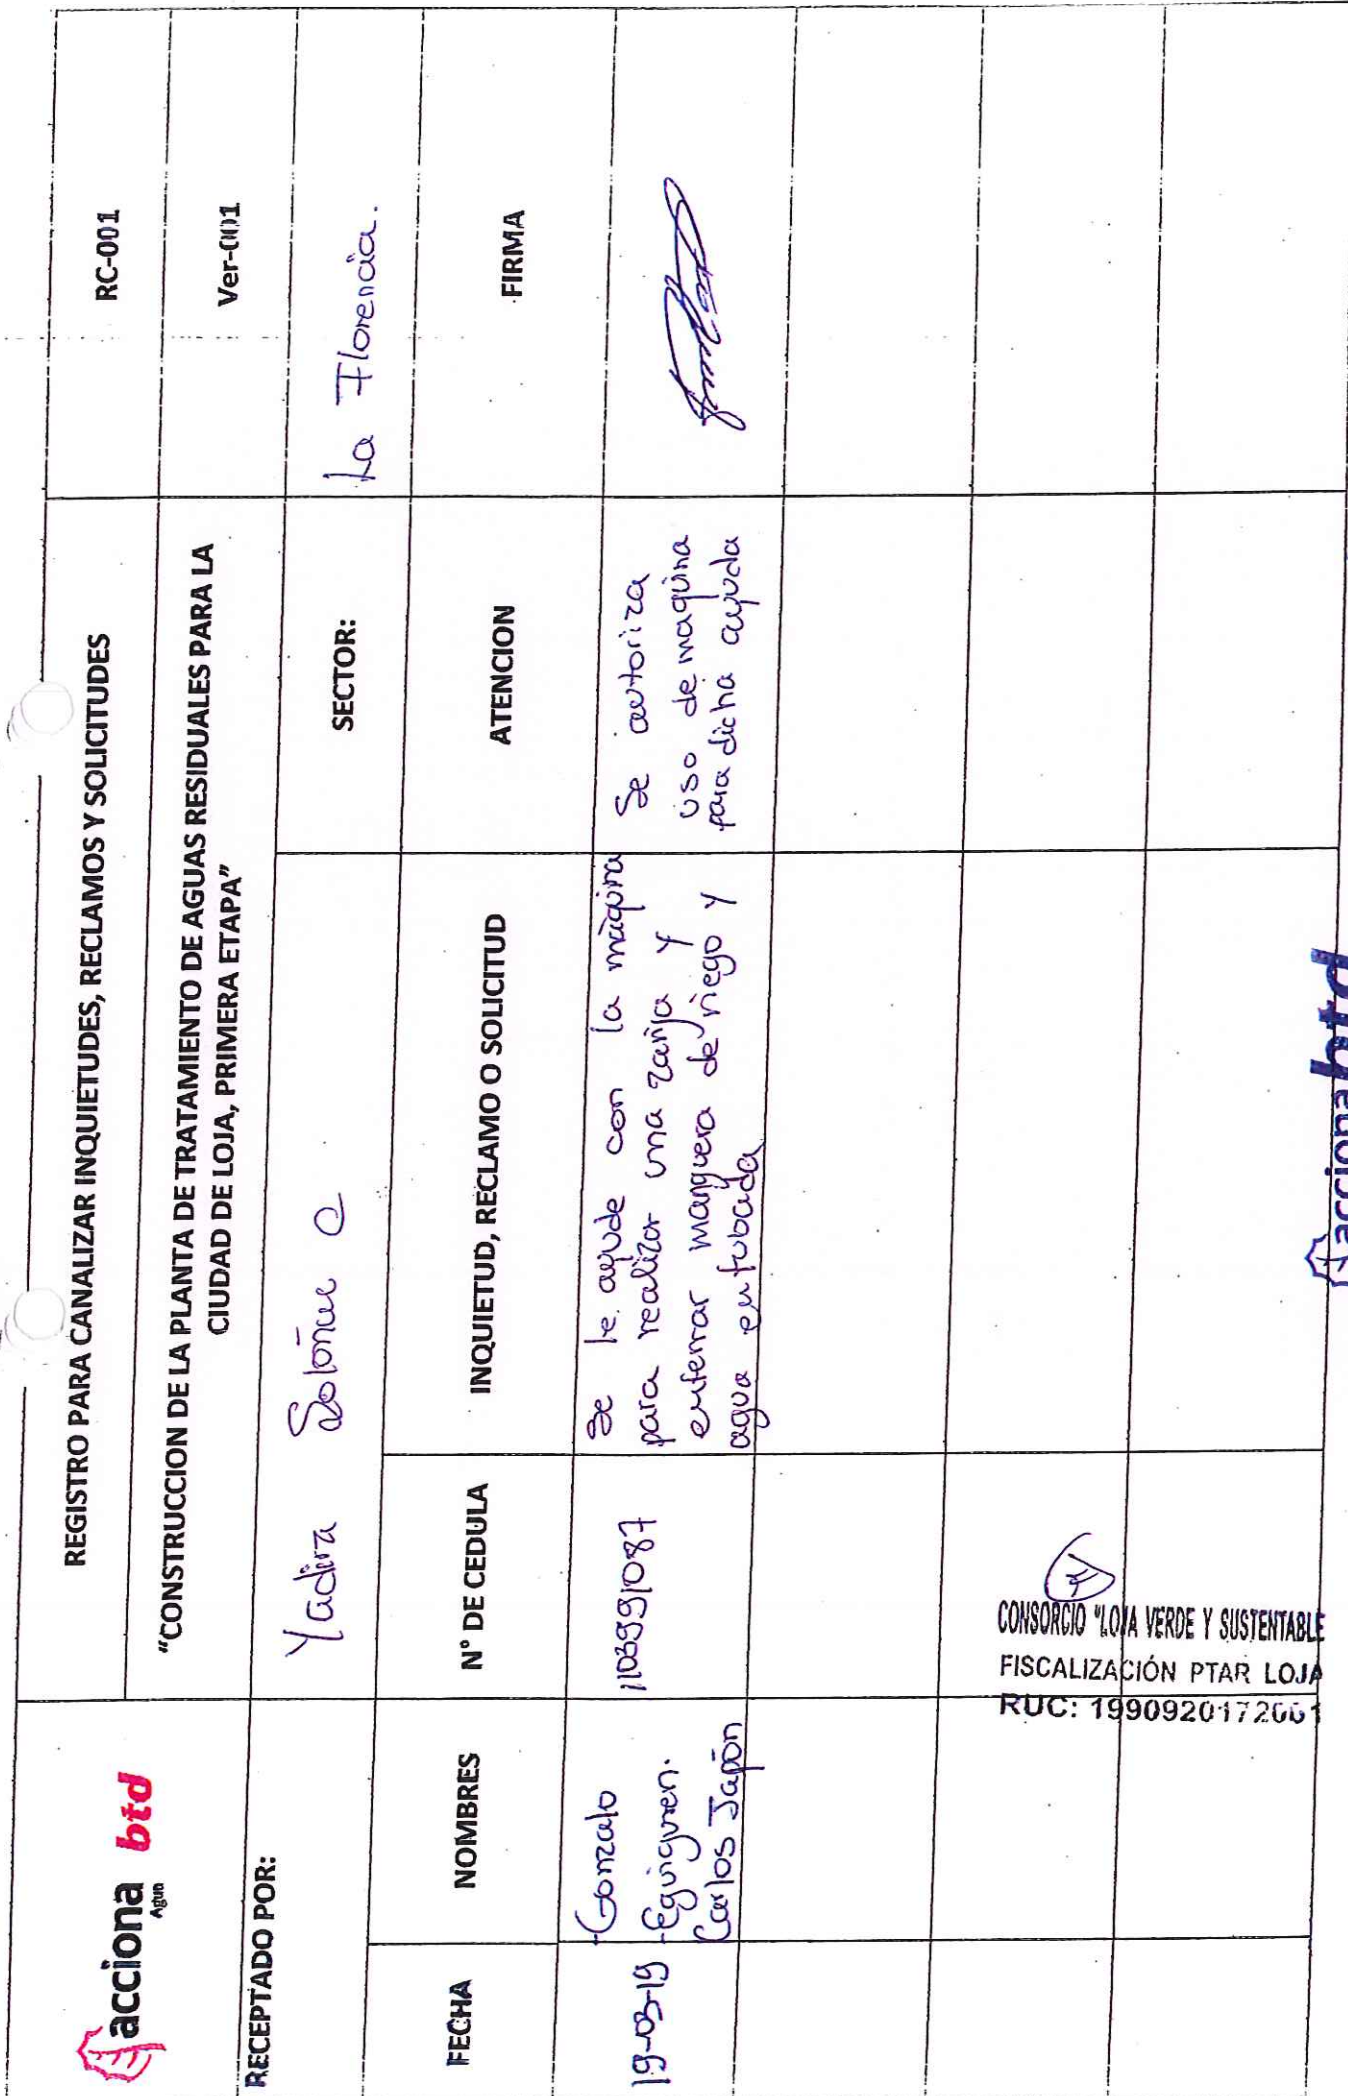 acciona btd
Agua
REGISTRO PARA CANALIZAR INQUIETUDES, RECLAMOS Y SOLICITUDES
RC-001
"CONSTRUCCION DE LA PLANTA DE TRATAMIENTO DE AGUAS RESIDUALES PARA LA
CIUDAD DE LOJA, PRIMERA ETAPA"
Ver-001
RECEPTADO POR:
Yadira
SECTOR:
La Florencia.
FECHA
NOMBRES
N° DE CEDULA
INQUIETUD, RECLAMO O SOLICITUD
ATENCION
FIRMA
19-03-19
-Gonzalo
-Eguiguren.
Carlos Japón
1103991087
Se le ayude con la máquina
para realizar una zanja y
enterrar manguera de riego y
agua entubada
Se autoriza
uso de maquina
para dicha ayuda
CONSORCIO "LOJA VERDE Y SUSTENTABLE
FISCALIZACIÓN PTAR LOJA
RUC: 1990920172001
acciona btd